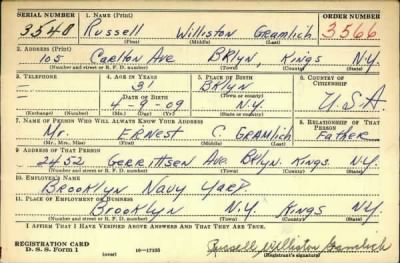 SERIAL NUMBER 1. NAME (Print) ORDER NUMBER
3548 Russell Williston Gramlich 3566
(First) (Middle) (Last)
2. ADDRESS (Print)
105 Carlton Ave BKlyn, Kings N.Y.
(Number and street or R. F. D. number) (Town) (County) (State)
3. TELEPHONE 4. AGE IN YEARS 5. PLACE OF BIRTH 6. COUNTRY OF CITIZENSHIP
— 31 BKlyn
DATE OF BIRTH (Town or county)
— 4-9-09 N.Y. U.S.A.
(Exchange) (Number) (Mo.) (Day) (Yr.) (State or country)
7. NAME OF PERSON WHO WILL ALWAYS KNOW YOUR ADDRESS 8. RELATIONSHIP OF THAT PERSON
Mr. ERNEST C. GRAMLich Father
(Mr., Mrs., Miss) (First) (Middle) (Last)
9. ADDRESS OF THAT PERSON
2452 Gerrittsen Ave. BKlyn. Kings N.Y.
(Number and street or R. F. D. number) (Town) (County) (State)
10. EMPLOYER'S NAME
Brooklyn Navy Yard
11. PLACE OF EMPLOYMENT OR BUSINESS
Brooklyn N.Y. Kings N.Y.
(Number and street or R. F. D. number) (Town) (County) (State)
I AFFIRM THAT I HAVE VERIFIED ABOVE ANSWERS AND THAT THEY ARE TRUE.
REGISTRATION CARD
D. S. S. Form 1 (over) 16—17105 Russell Williston Gramlich
(Registrant's signature)